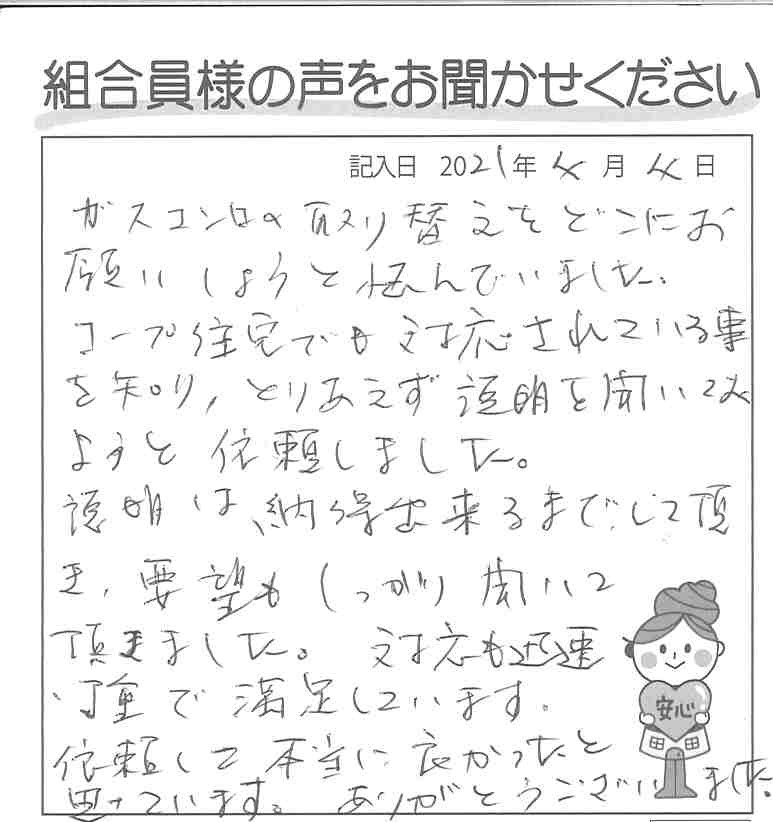 組合員様の声をお聞かせください
記入日 2021年 4月 4日
ガスコンロの取り替えをどこにお
願いしようと悩んでいました。
コープ住宅でも対応されている事
を知り、とりあえず説明を聞いてみ
ようと依頼しました。
説明は、納得出来るまでして頂
き、要望もしっかり聞いて
頂きました。対応も迅速
丁重で満足しています。
依頼して本当に良かったと
思っています。ありがとうございました。
安心